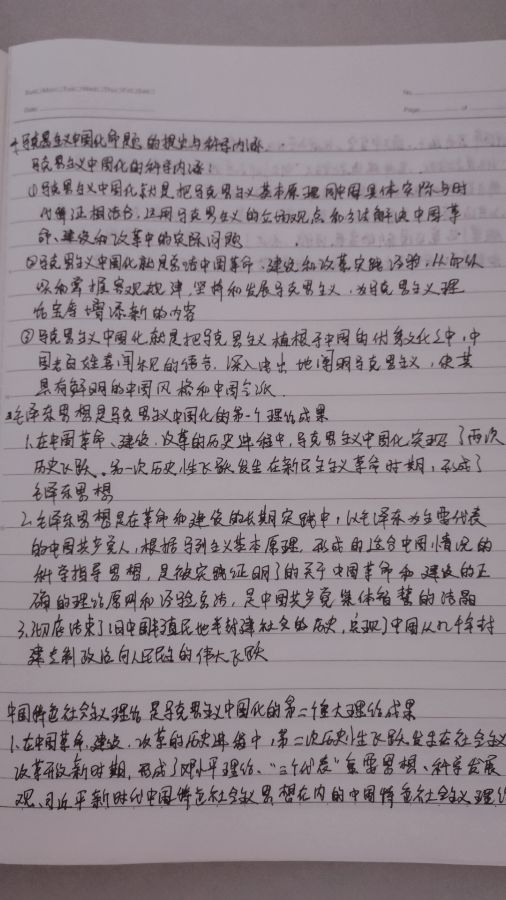 Sun□Mon□Tue□Wed□Thu□Fri□Sat□
No.
Date:
Page of
马克思主义中国化命题的提出与科学内涵
马克思主义中国化的科学内涵:
①马克思主义中国化就是把马克思主义基本原理同中国具体实际与时
代特征相结合,运用马克思主义的立场观点和方法解决中国革
命、建设和改革中的实际问题
②马克思主义中国化就是总结中国革命、建设和改革实践经验,从而认
识和掌握客观规律,坚持和发展马克思主义,为马克思主义理
论宝库增添新的内容
③马克思主义中国化就是把马克思主义植根于中国的优秀文化之中,中
国老百姓喜闻乐见的语言,深入浅出地阐明马克思主义,使其
具有鲜明的中国风格和中国气派.
毛泽东思想是马克思主义中国化的第一个理论成果
1.在中国革命、建设、改革的历史进程中,马克思主义中国化实现了两次
历史飞跃、第一次历史性飞跃发生在新民主主义革命时期,形成了
毛泽东思想
2.毛泽东思想是在革命和建设的长期实践中,以毛泽东为主要代表
的中国共产党人,根据马列主义基本原理,形成的适合中国情况的
科学指导思想,是被实践证明了的关于中国革命和建设的正
确的理论原则和经验总结,是中国共产党集体智慧的结晶
3.彻底结束了旧中国半殖民地半封建社会的历史,实现了中国从几千年封
建专制政治向人民民主的伟大飞跃
中国特色社会主义理论是马克思主义中国化的第二个重大理论成果
1.在中国革命、建设、改革的历史进程中,第二次历史性飞跃发生在社会主义
改革开放新时期,形成了邓小平理论、“三个代表”重要思想、科学发展
观、习近平新时代中国特色社会主义思想在内的中国特色社会主义理论